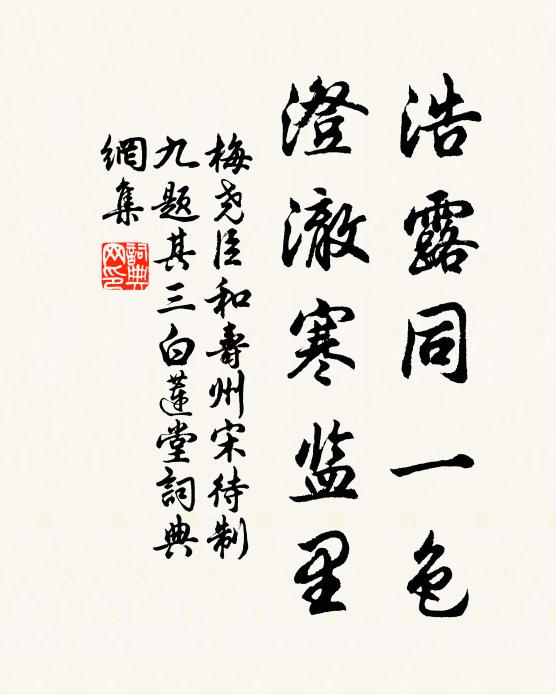 浩露同一色
澄澈寒监里
梅尧臣和壽州宋待制
九题其三白莲堂詞典
網集
詞典
网印